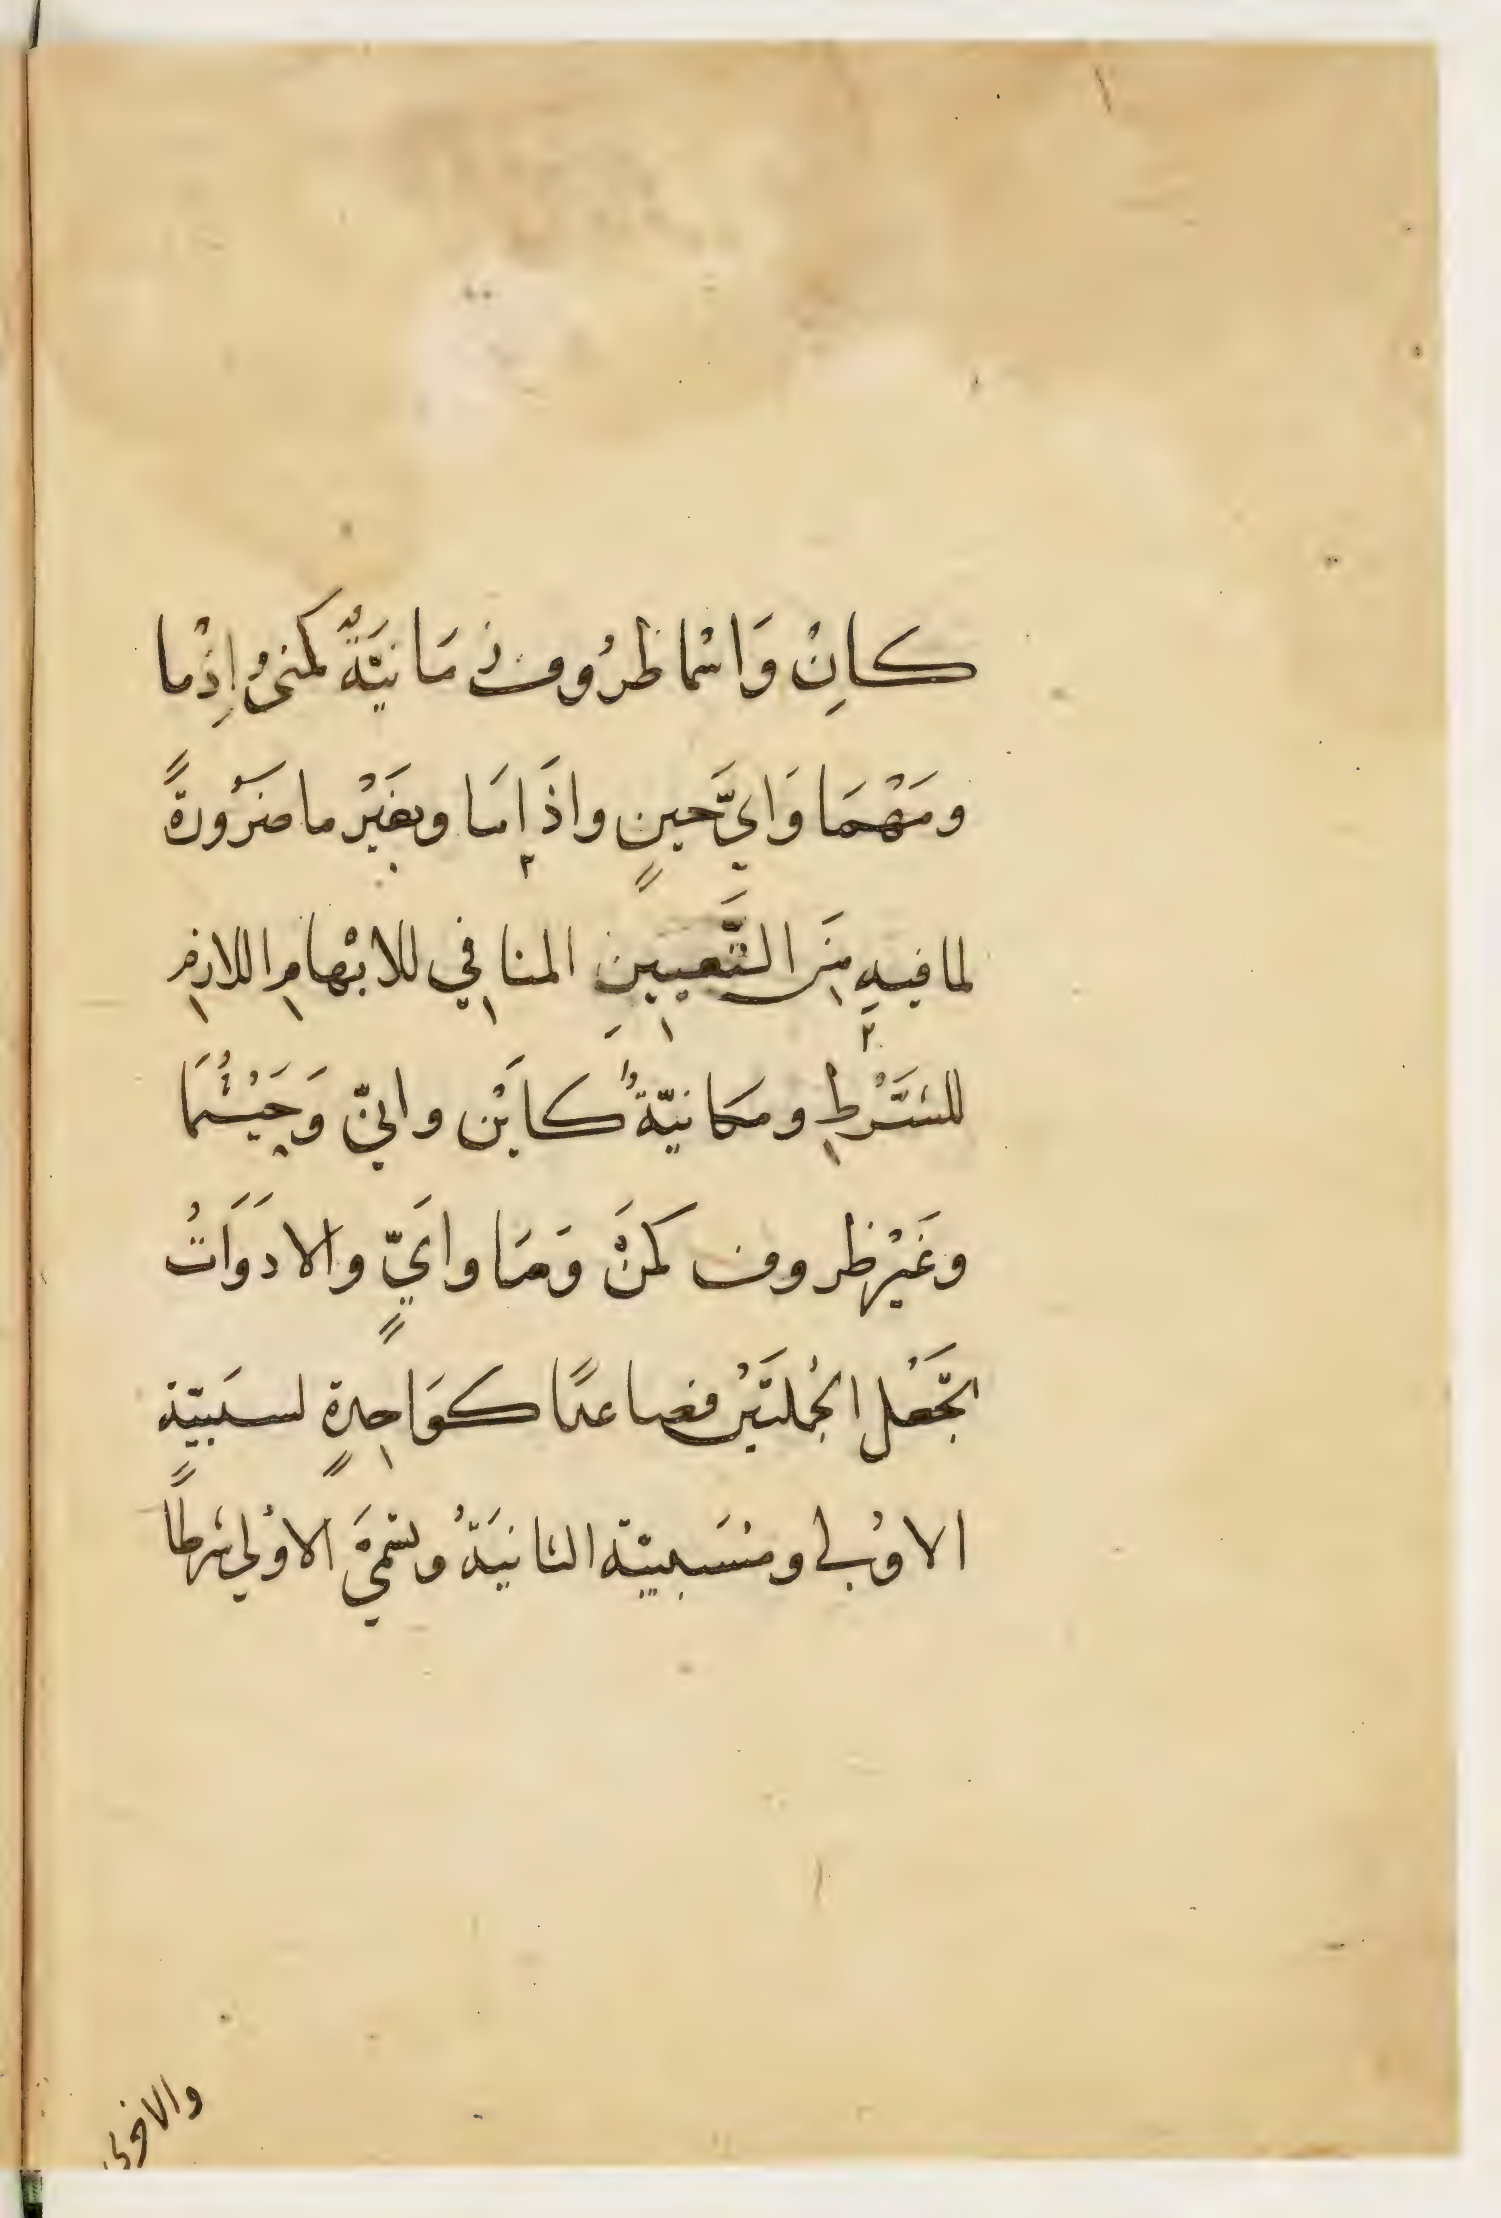 كانْ وَاسْما ظرُوف زمَانيّةٌ كمتى وإذْما
ومَهْمَا وَايَّ حينٍ واذَا مَا وبغَيْر ما ضرَورةً
لما فيهِ مِنَ التَّعيينِ المنافي للابْهامِ اللازم
للشَّرْطِ ومكانيّةٌ كاَيْن وانيّ وَحَيْثُمَا
وغَيْر ظروف كمَنْ وَمَا وايَيٍّ والادَوَاتُ
تجَعْل الجُملتَيْن فصاعدًا كوَاحِدةٍ لسببَيّة
الاوُلي ومسَببيّة الثانيَةُ وتسَميَّ الاوْلي شرطًا
والاخرى